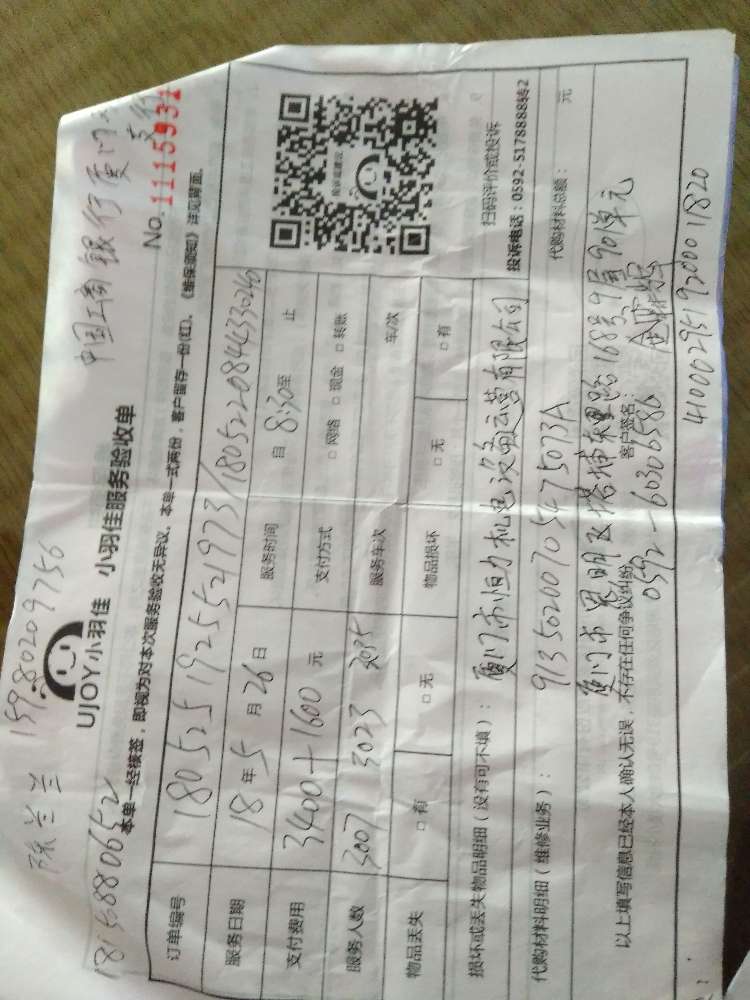 陈兰兰 15980209756
中国工商银行厦门
支行
UJOY小羽佳 小羽佳服务验收单
No. 1115931
18150880652
本单一经接签，即视为对本次服务验收无异议。本单一式两份，客户留存一份(红)。《维保须知》详见背面。
订单编号 18052519255521973/18052208443302
服务日期 18年5月26日 服务时间 自 8:30至 止
支付费用 3400+1600元 支付方式 □网络 □现金 □转账
服务人数 3007 3023 3035 服务车次 车/次
物品丢失 □有 □无 物品损坏 □无 □有
投诉或建议
扫码评价或投诉
投诉电话：0592-5178888转2
损坏或丢失物品明细（没有可不填）： 厦门市恒力机电设备运营有限公司
代购材料明细（维修业务）： 91350200705475073A 代购材料总额： 元
厦门市思明区塔埔东里路168号9层901单元
以上填写信息已经本人确认无误，不存在任何争议纠纷 客户签名：
0592-60306586
4100029519200011820